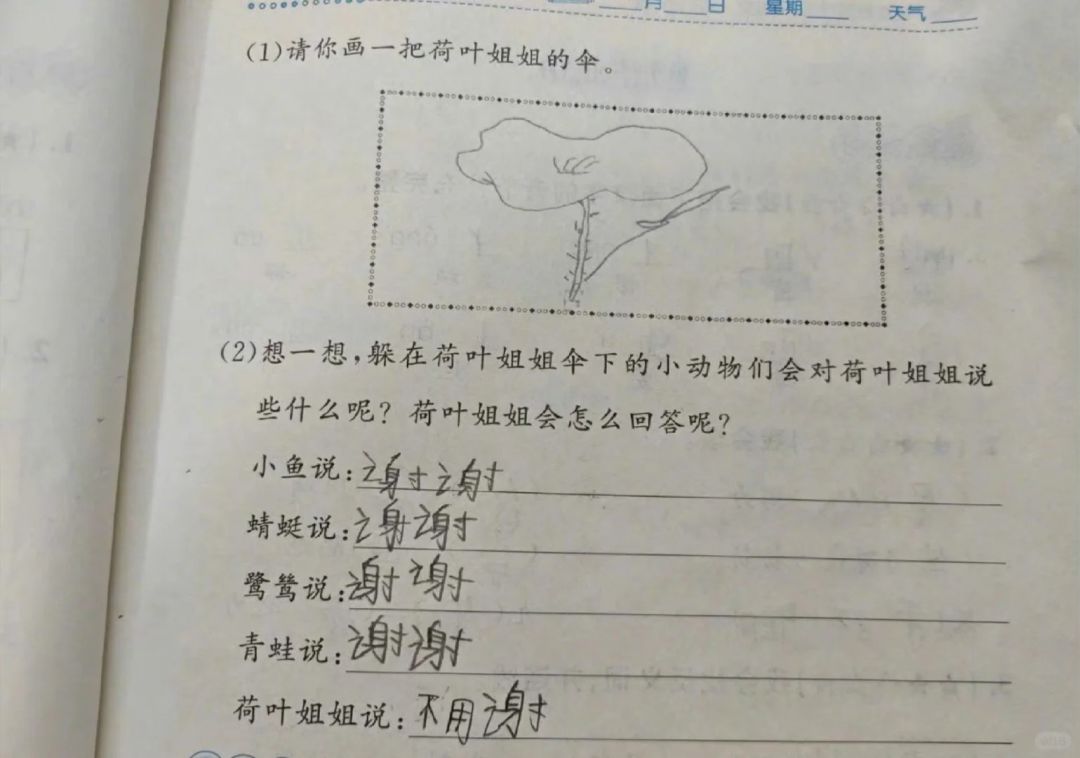 月 日 星期 天气
(1)请你画一把荷叶姐姐的伞。
(2)想一想,躲在荷叶姐姐伞下的小动物们会对荷叶姐姐说
些什么呢?荷叶姐姐会怎么回答呢?
小鱼说:谢谢
蜻蜓说:谢谢
鹭鸶说:谢谢
青蛙说:谢谢
荷叶姐姐说:不用谢